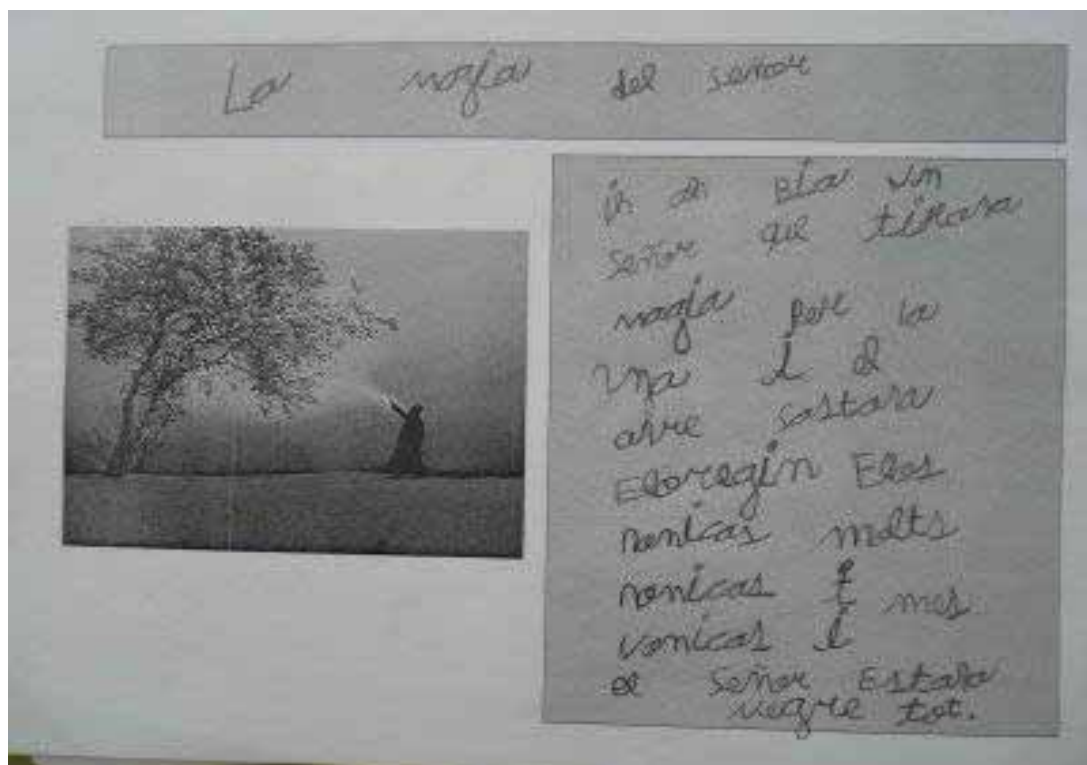 La magia del señor
in di Bia un
señor que tirara
magia per la
una i el
avre sastara
Eloregin Elas
nonicas molts
nonicas i mes
vonicas i
el señor Estara
negre tot.